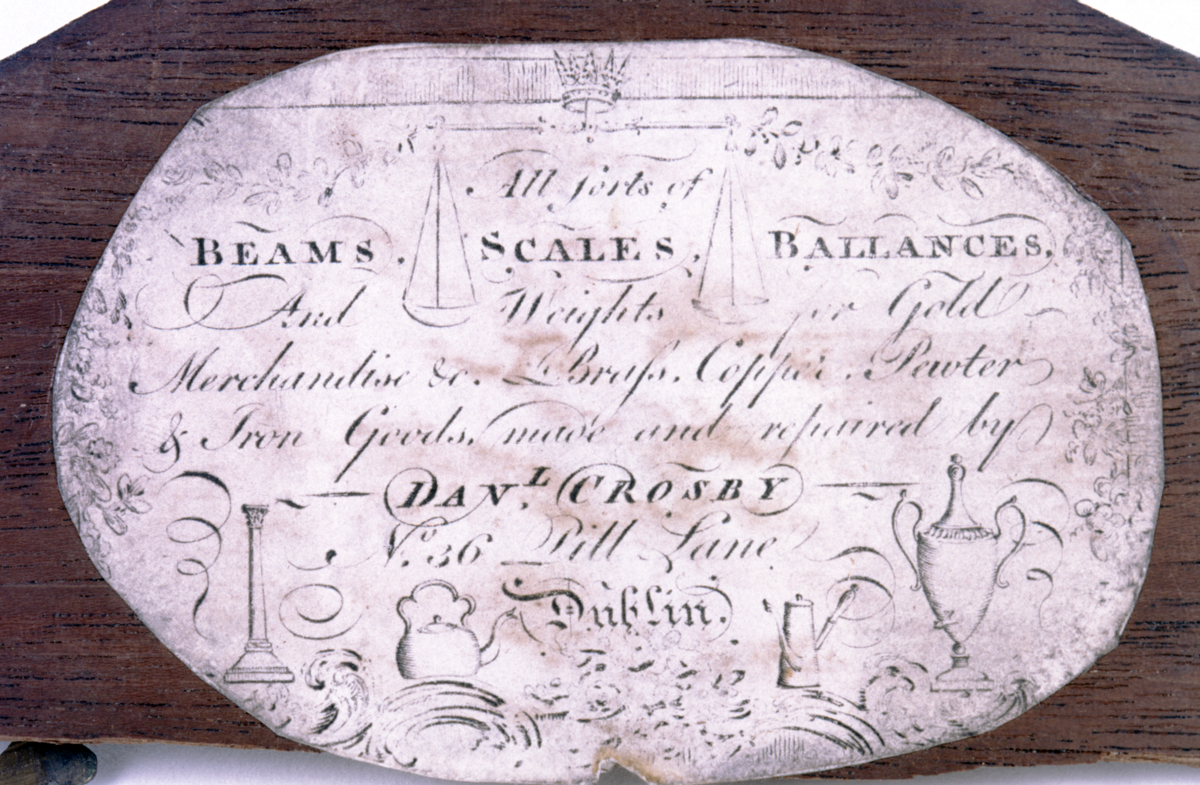 All ſorts of
BEAMS, SCALES, BALLANCES,
And Weights for Gold
Merchandise &c. Braſs, Copper, Pewter
& Iron Goods, made and repaired by
DAN.L CROSBY
No. 36 Pill Lane
Dublin.